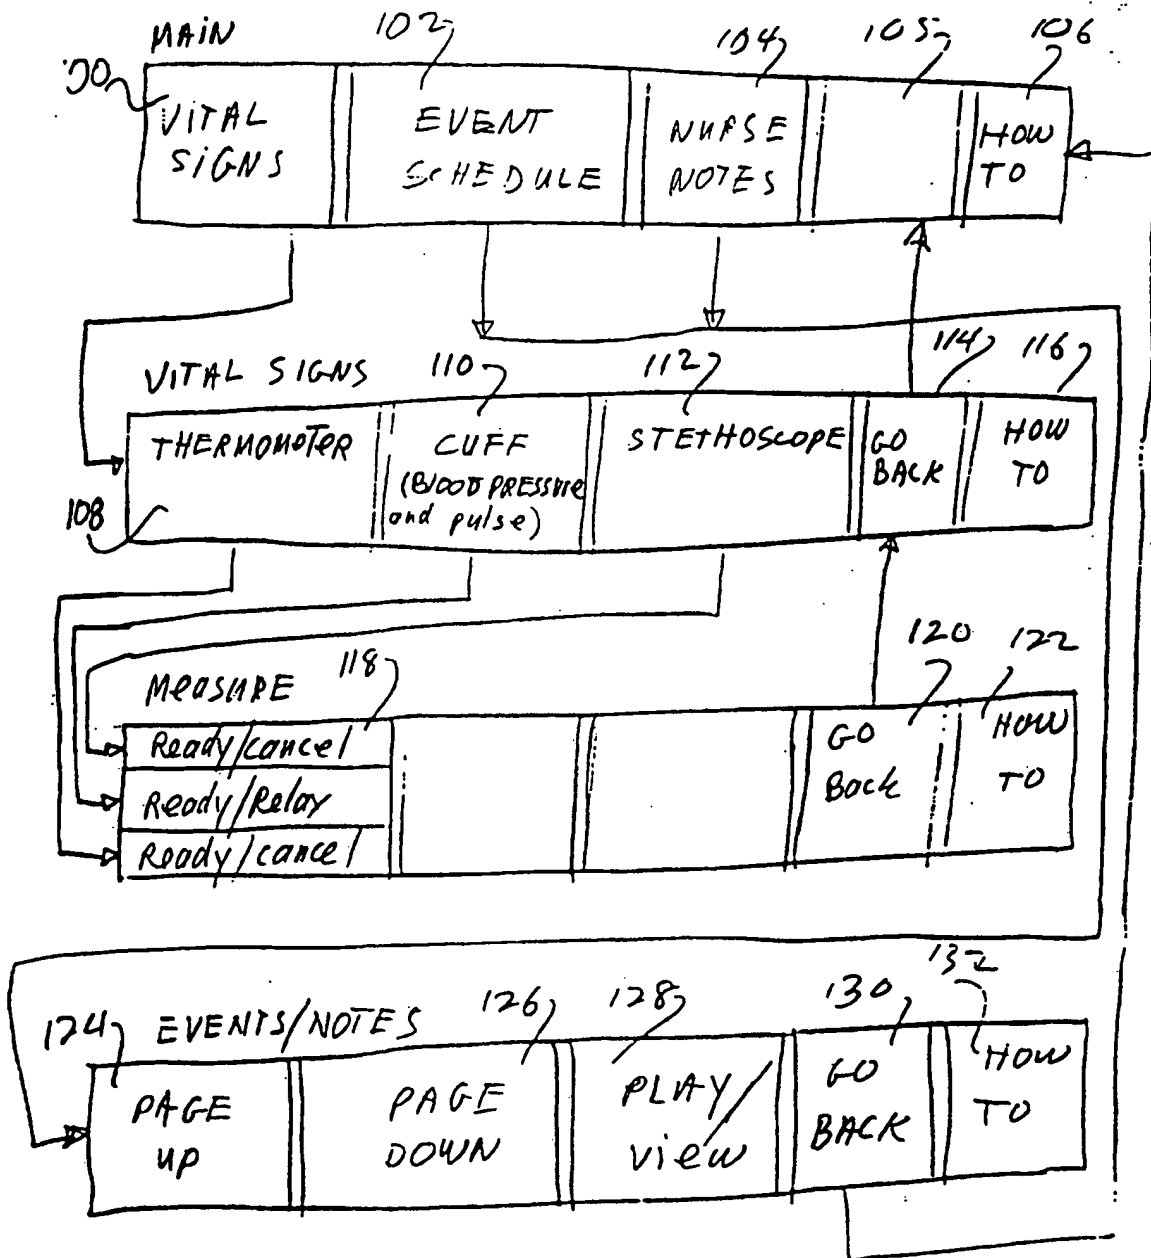 MAIN
102
104
105
106
'00
VITAL
SIGNS
EVENT
SCHEDULE
NURSE
NOTES
HOW
TO
VITAL SIGNS
110
112
114
116
THERMOMETER
CUFF
(Blood PRESSURE
and pulse)
STETHOSCOPE
GO
BACK
HOW
TO
108
MEASURE
118
120
122
Ready/cancel
Ready/Relay
Ready/cancel
GO
Back
HOW
TO
124
EVENTS/NOTES
126
128
130
132
PAGE
UP
PAGE
DOWN
PLAY/
view
GO
BACK
HOW
TO